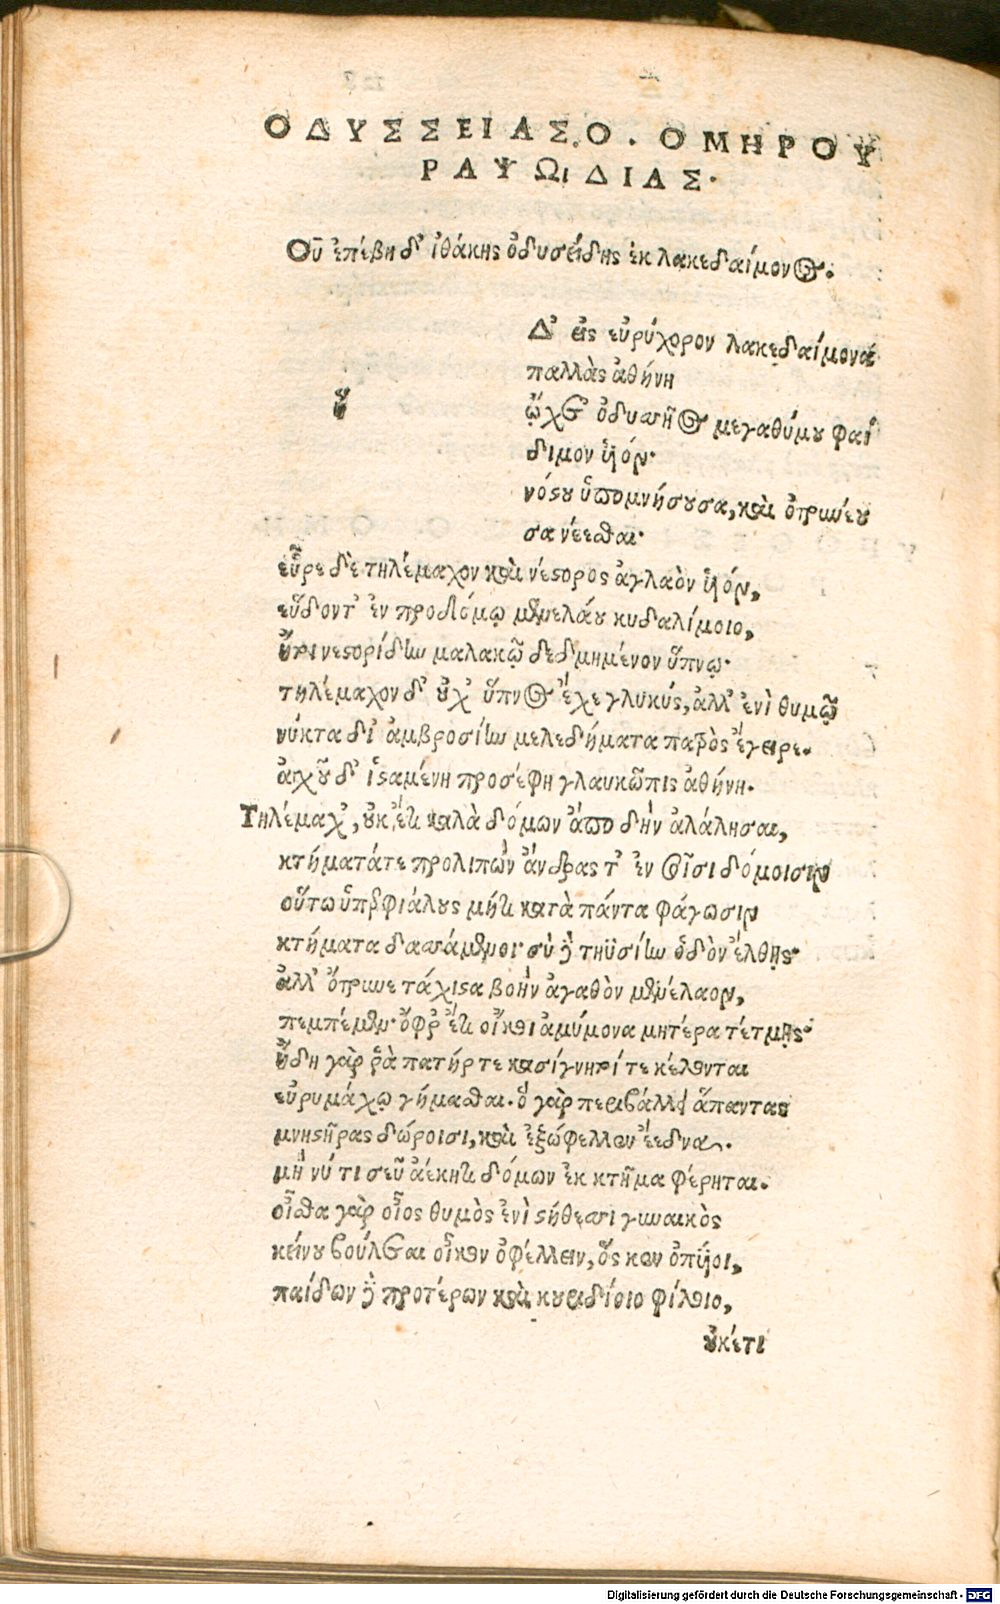 ΟΔΥΣΣΕΙΑΣ.Ο. ΟΜΗΡΟΥ
ΡΑΨΩιΔΙΑΣ.
Οὖ ἐπέβη δ' ἰθάκης ὀδυσείδης ἐκ λακεδαίμονος.
ἡ
Δ' εἰς εὐρύχορον λακεδαίμονα
παλλὰς ἀθήνη
ᾤχετ' ὀδυσσῆος μεγαθύμου φαί
διμον ἱὸν.
νόστου ὑπομνήσουσα, καὶ ὀτρυνέου
σα νέεσθαι.
εὗρε δὲ τηλέμαχον καὶ νέστορος ἀγλαὸν ἱόν,
εὕδοντ' ἐν προδόμῳ μενελάου κυδαλίμοιο,
ἤτοι νεστορίδην μαλακῷ δεδμημένον ὕπνῳ.
τηλέμαχον δ' οὐχ' ὕπνος ἔχε γλυκύς, ἀλλ' ἐνὶ θυμῷ
νύκτα δι' ἀμβροσίην μελεδήματα πατρὸς ἔγειρε.
ἀγχοῦ δ' ἱσταμένη προσέφη γλαυκῶπις ἀθήνη.
Τηλέμαχ', οὐκ ἔτι καλὰ δόμων ἄπο δὴν ἀλάλησαι,
κτήματάτε προλιπὼν ἄνδρας τ' ἐν σοῖσι δόμοισιν
οὕτω ὑπερφιάλους μήτι κατὰ πάντα φάγωσιν
κτήματα δασσάμενοι· σὺ δὲ τηϋσίην ὁδὸν ἔλθῃς.
ἀλλ' ὄτρυνε τάχιστα βοὴν ἀγαθὸν μενέλαον,
πεμπέμεν· ὄφρ' ἔτι οἴκοι ἀμύμονα μητέρα τέτμῃς.
ἤδη γὰρ ῥὰ πατήρ τε κασίγνητοί τε κέλονται
εὐρυμάχῳ γήμασθαι. ὁ γὰρ περιβάλλει ἅπαντας
μνηστῆρας δώροισι, καὶ ἐξώφελλεν ἔεδνα.
μή νύ τι σεῦ ἀέκητι δόμων ἐκ κτῆμα φέρηται.
οἶσθα γὰρ οἷος θυμὸς ἐνὶ στήθεσσι γυναικὸς
κείνου βούλεται οἶκον ὀφέλλειν, ὅς κεν ὀπυίοι,
παίδων δὲ προτέρων καὶ κουριδίοιο φίλοιο,
οὐκέτι
Digitalisierung gefördert durch die Deutsche Forschungsgemeinschaft - DFG